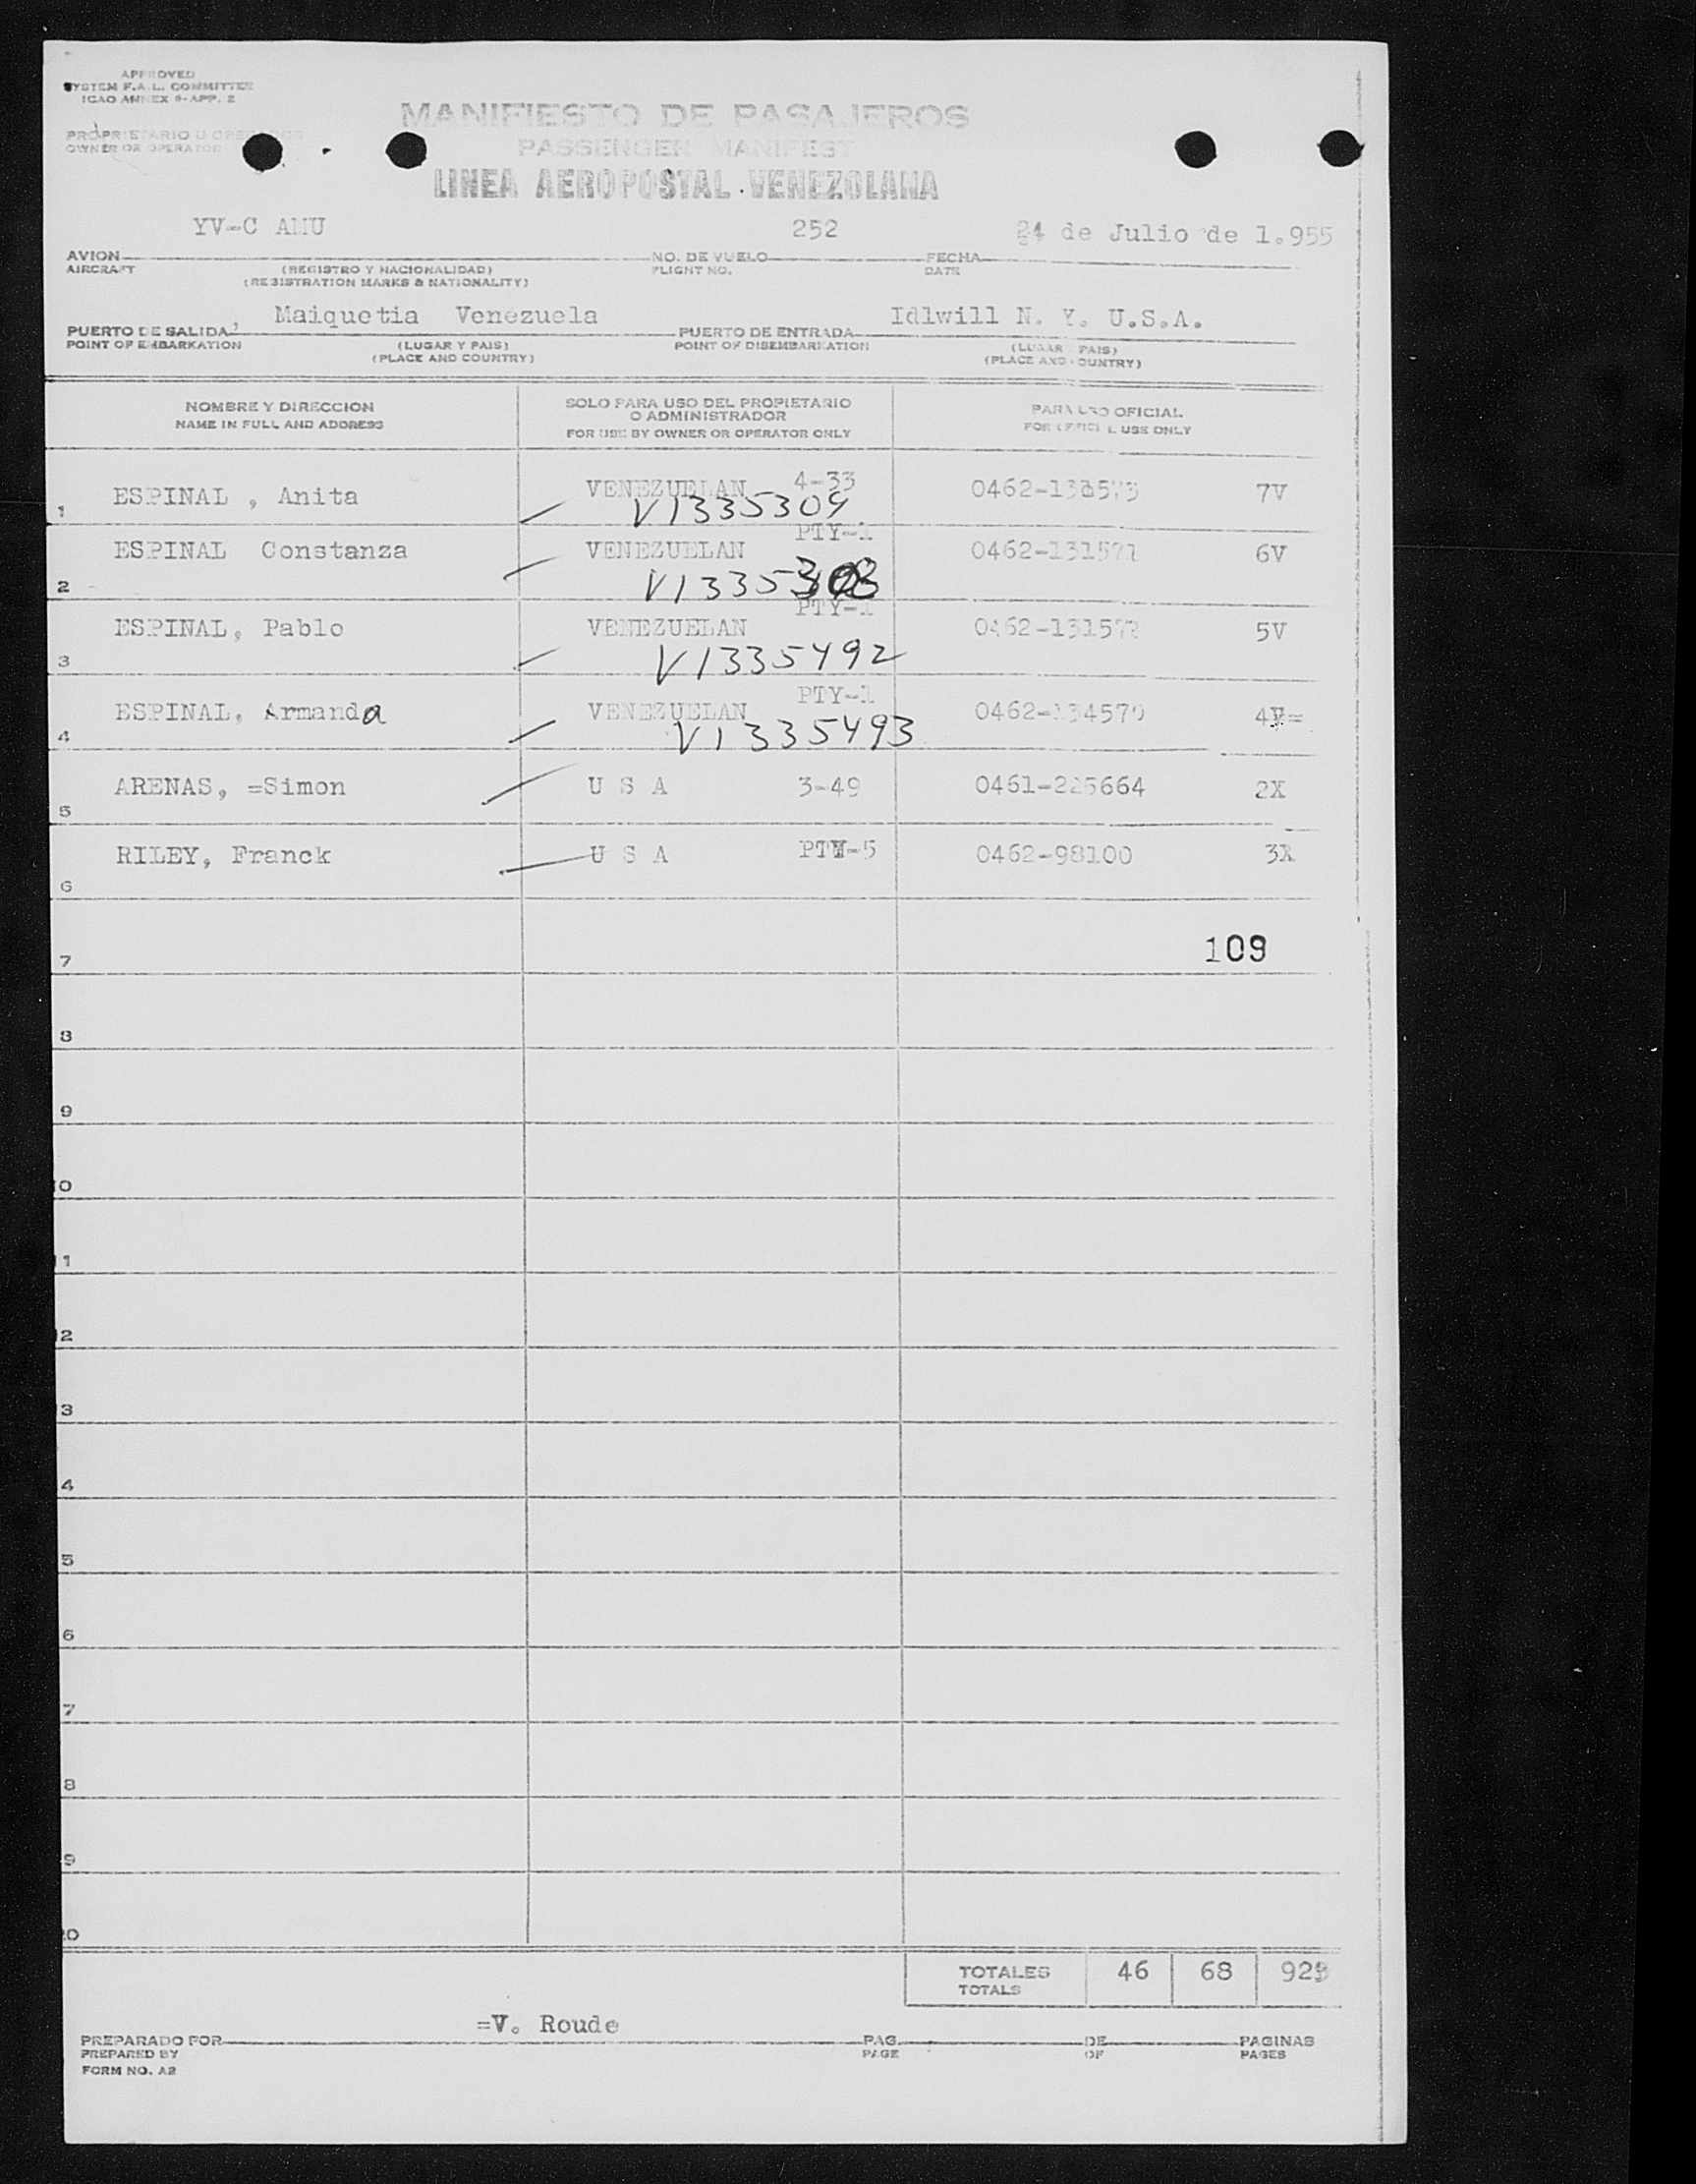 APPROVED
SYSTEM F.A.L. COMMITTEE
ICAO ANNEX 9-APP. 2
PROPRIETARIO U OPERADOR
OWNER OR OPERATOR
MANIFIESTO DE PASAJEROS
PASSENGER MANIFEST
LINEA AEROPOSTAL VENEZOLANA
YV-C AMU 252 24 de Julio de 1.955
AVION NO. DE VUELO FECHA
AIRCRAFT (REGISTRO Y NACIONALIDAD) FLIGHT NO. DATE
(REGISTRATION MARKS & NATIONALITY)
Maiquetia Venezuela Idlwill N. Y. U.S.A.
PUERTO DE SALIDA (LUGAR Y PAIS) PUERTO DE ENTRADA (LUGAR PAIS)
POINT OF EMBARKATION (PLACE AND COUNTRY) POINT OF DISEMBARKATION (PLACE AND COUNTRY)
NOMBRE Y DIRECCION
NAME IN FULL AND ADDRESS
SOLO PARA USO DEL PROPIETARIO
O ADMINISTRADOR
FOR USE BY OWNER OR OPERATOR ONLY
PARA USO OFICIAL
FOR OFFICIAL USE ONLY
1 ESPINAL , Anita VENEZUELAN 4-33 7V
V1335309
2 ESPINAL Constanza VENEZUELAN PTY-1 6V
3 ESPINAL, Pablo VENEZUELAN PTY-1 5V
V1335492
4 ESPINAL, Armanda VENEZUELAN PTY-1
V1335493
5 ARENAS, =Simon U S A 3-49 0461-225664 2X
6 RILEY, Franck U S A 0462-98100 3X
109
7
8
9
10
11
12
13
14
15
16
17
18
19
20
TOTALES 46 68
TOTALS
=V. Roude
PREPARADO POR PAG. DE PAGINAS
PREPARED BY PAGE OF PAGES
FORM NO. A2